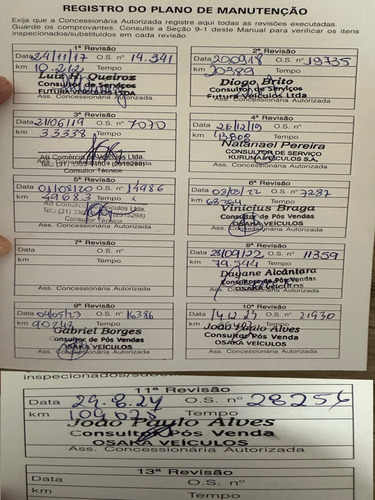 REGISTRO DO PLANO DE MANUTENÇÃO
Exija que a Concessionária Autorizada registre aqui todas as revisões executadas.
Guarde os comprovantes. Consulte a Seção 9-1 deste Manual para verificar os itens
inspecionados/substituídos em cada revisão
1ª Revisão
Data 24/11/17 O.S. nº 14.341
km 10.262 Tempo
Luiz H. Queiroz
Consultor de Serviços
FUTURA VEÍCULOS LTDA
Ass. Concessionária Autorizada
2ª Revisão
Data O.S. nº 19735
km 20389 Tempo
Diogo Brito
Consultor de Serviços
Futura Veículos Ltda
Ass. Concessionária Autorizada
3ª Revisão
Data 21/06/19 O.S. nº 7070
km 33338 Tempo
Consultor Técnico
4ª Revisão
Data 26/12/19 O.S. nº
km Tempo
Natanael Pereira
CONSULTOR DE SERVIÇO
KURUMÁ VEÍCULOS S.A.
Ass. Concessionária Autorizada
5ª Revisão
Data 01/08/20 O.S. nº
km 49683 Tempo
Consultor Técnico
6ª Revisão
Data 02/02/22 O.S. nº 7287
km Tempo
Vinicius Braga
Consultor de Pós Vendas
OSAKA VEÍCULOS
Ass. Concessionária Autorizada
7ª Revisão
Data O.S. nº
km Tempo
Ass. Concessionária Autorizada
8ª Revisão
Data 28/09/22 O.S. nº 11359
km 79.544 Tempo
Dayane Alcântara
OSAKA VEÍCULOS
Ass. Concessionária Autorizada
9ª Revisão
Data O.S. nº 16386
km Tempo
Gabriel Borges
Consultor de Pós Vendas
OSAKA VEÍCULOS
Ass. Concessionária Autorizada
10ª Revisão
Data 14.12.23 O.S. nº 21930
km Tempo
João Paulo Alves
Consultor de Pós Venda
OSAKA VEÍCULOS
Ass. Concessionária Autorizada
11ª Revisão
Data 29.8.24 O.S. nº 28256
km Tempo
João Paulo Alves
Consultor Pós Venda
OSAKA VEÍCULOS
Ass. Concessionária Autorizada
13ª Revisão
Data O.S. nº
km Tempo